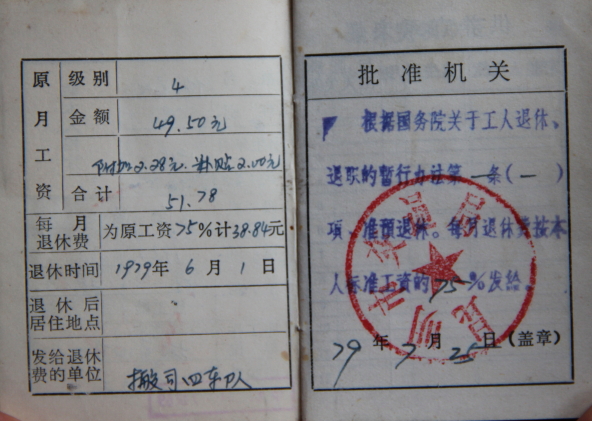 原月工资
级别 4
金额 49.50元
附加2.28元 补贴2.00元
合计 51.78
每月退休费 为原工资75%计38.84元
退休时间 1979年6月1日
退休后居住地点
发给退休费的单位 搬司四车队
批准机关
根据国务院关于工人退休、
退职的暂行办法第一条(一)
项、准预退休。每月退休费按本
人标准工资的75%发给。
79年7月25日(盖章)